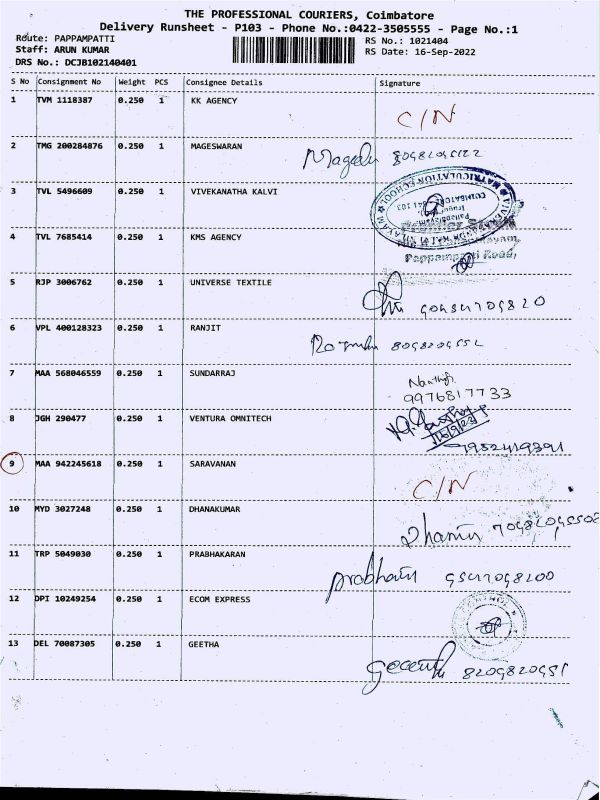 THE PROFESSIONAL COURIERS, Coimbatore
Delivery Runsheet - P103 - Phone No.:0422-3505555 - Page No.:1
Route: PAPPAMPATTI
RS No.: 1021404
Staff: ARUN KUMAR
RS Date: 16-Sep-2022
DRS No.: DCJB102140401
S No Consignment No Weight PCS Consignee Details Signature
1 TVM 1118387 0.250 1 KK AGENCY
C/N
2 TMG 200284876 0.250 1 MAGESWARAN
3 TVL 5496609 0.250 1 VIVEKANATHA KALVI
MATRICULATION SCHOOL
COIMBATORE
4 TVL 7685414 0.250 1 KMS AGENCY
5 RJP 3006762 0.250 1 UNIVERSE TEXTILE
6 VPL 400128323 0.250 1 RANJIT
7 MAA 568046559 0.250 1 SUNDARRAJ
9976817733
8 JGH 290477 0.250 1 VENTURA OMNITECH
9 MAA 942245618 0.250 1 SARAVANAN
C/N
10 MYD 3027248 0.250 1 DHANAKUMAR
11 TRP 5049030 0.250 1 PRABHAKARAN
12 DPI 10249254 0.250 1 ECOM EXPRESS
13 DEL 70087305 0.250 1 GEETHA